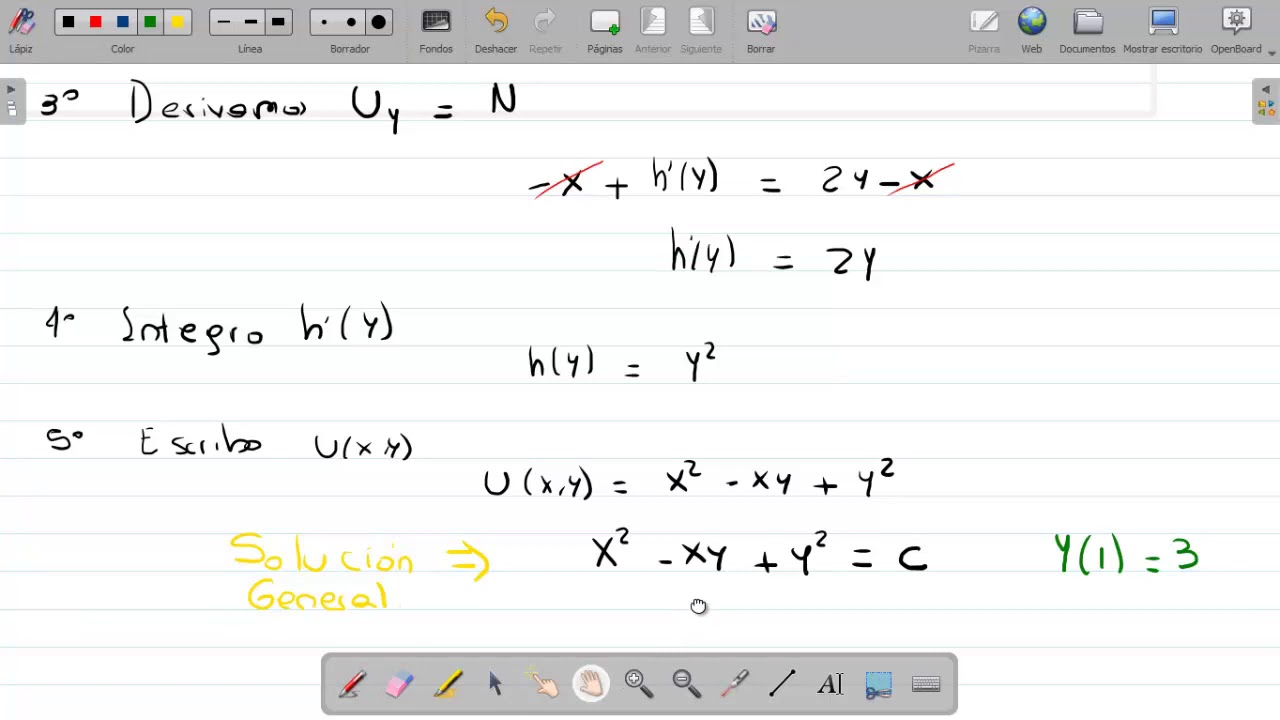 Lápiz Color Línea Borrador Fondos Deshacer Repetir Páginas Anterior Siguiente Borrar Pizarra Web Documentos Mostrar escritorio OpenBoard
3° Derivamos Uy = N
-x + h'(y) = 2y - x
h'(y) = 2y
4° Integro h'(y)
h(y) = y²
5° Escribo U(x,y)
U(x,y) = x² - xy + y²
Solución ⇒ x² - xy + y² = C y(1) = 3
General
AI